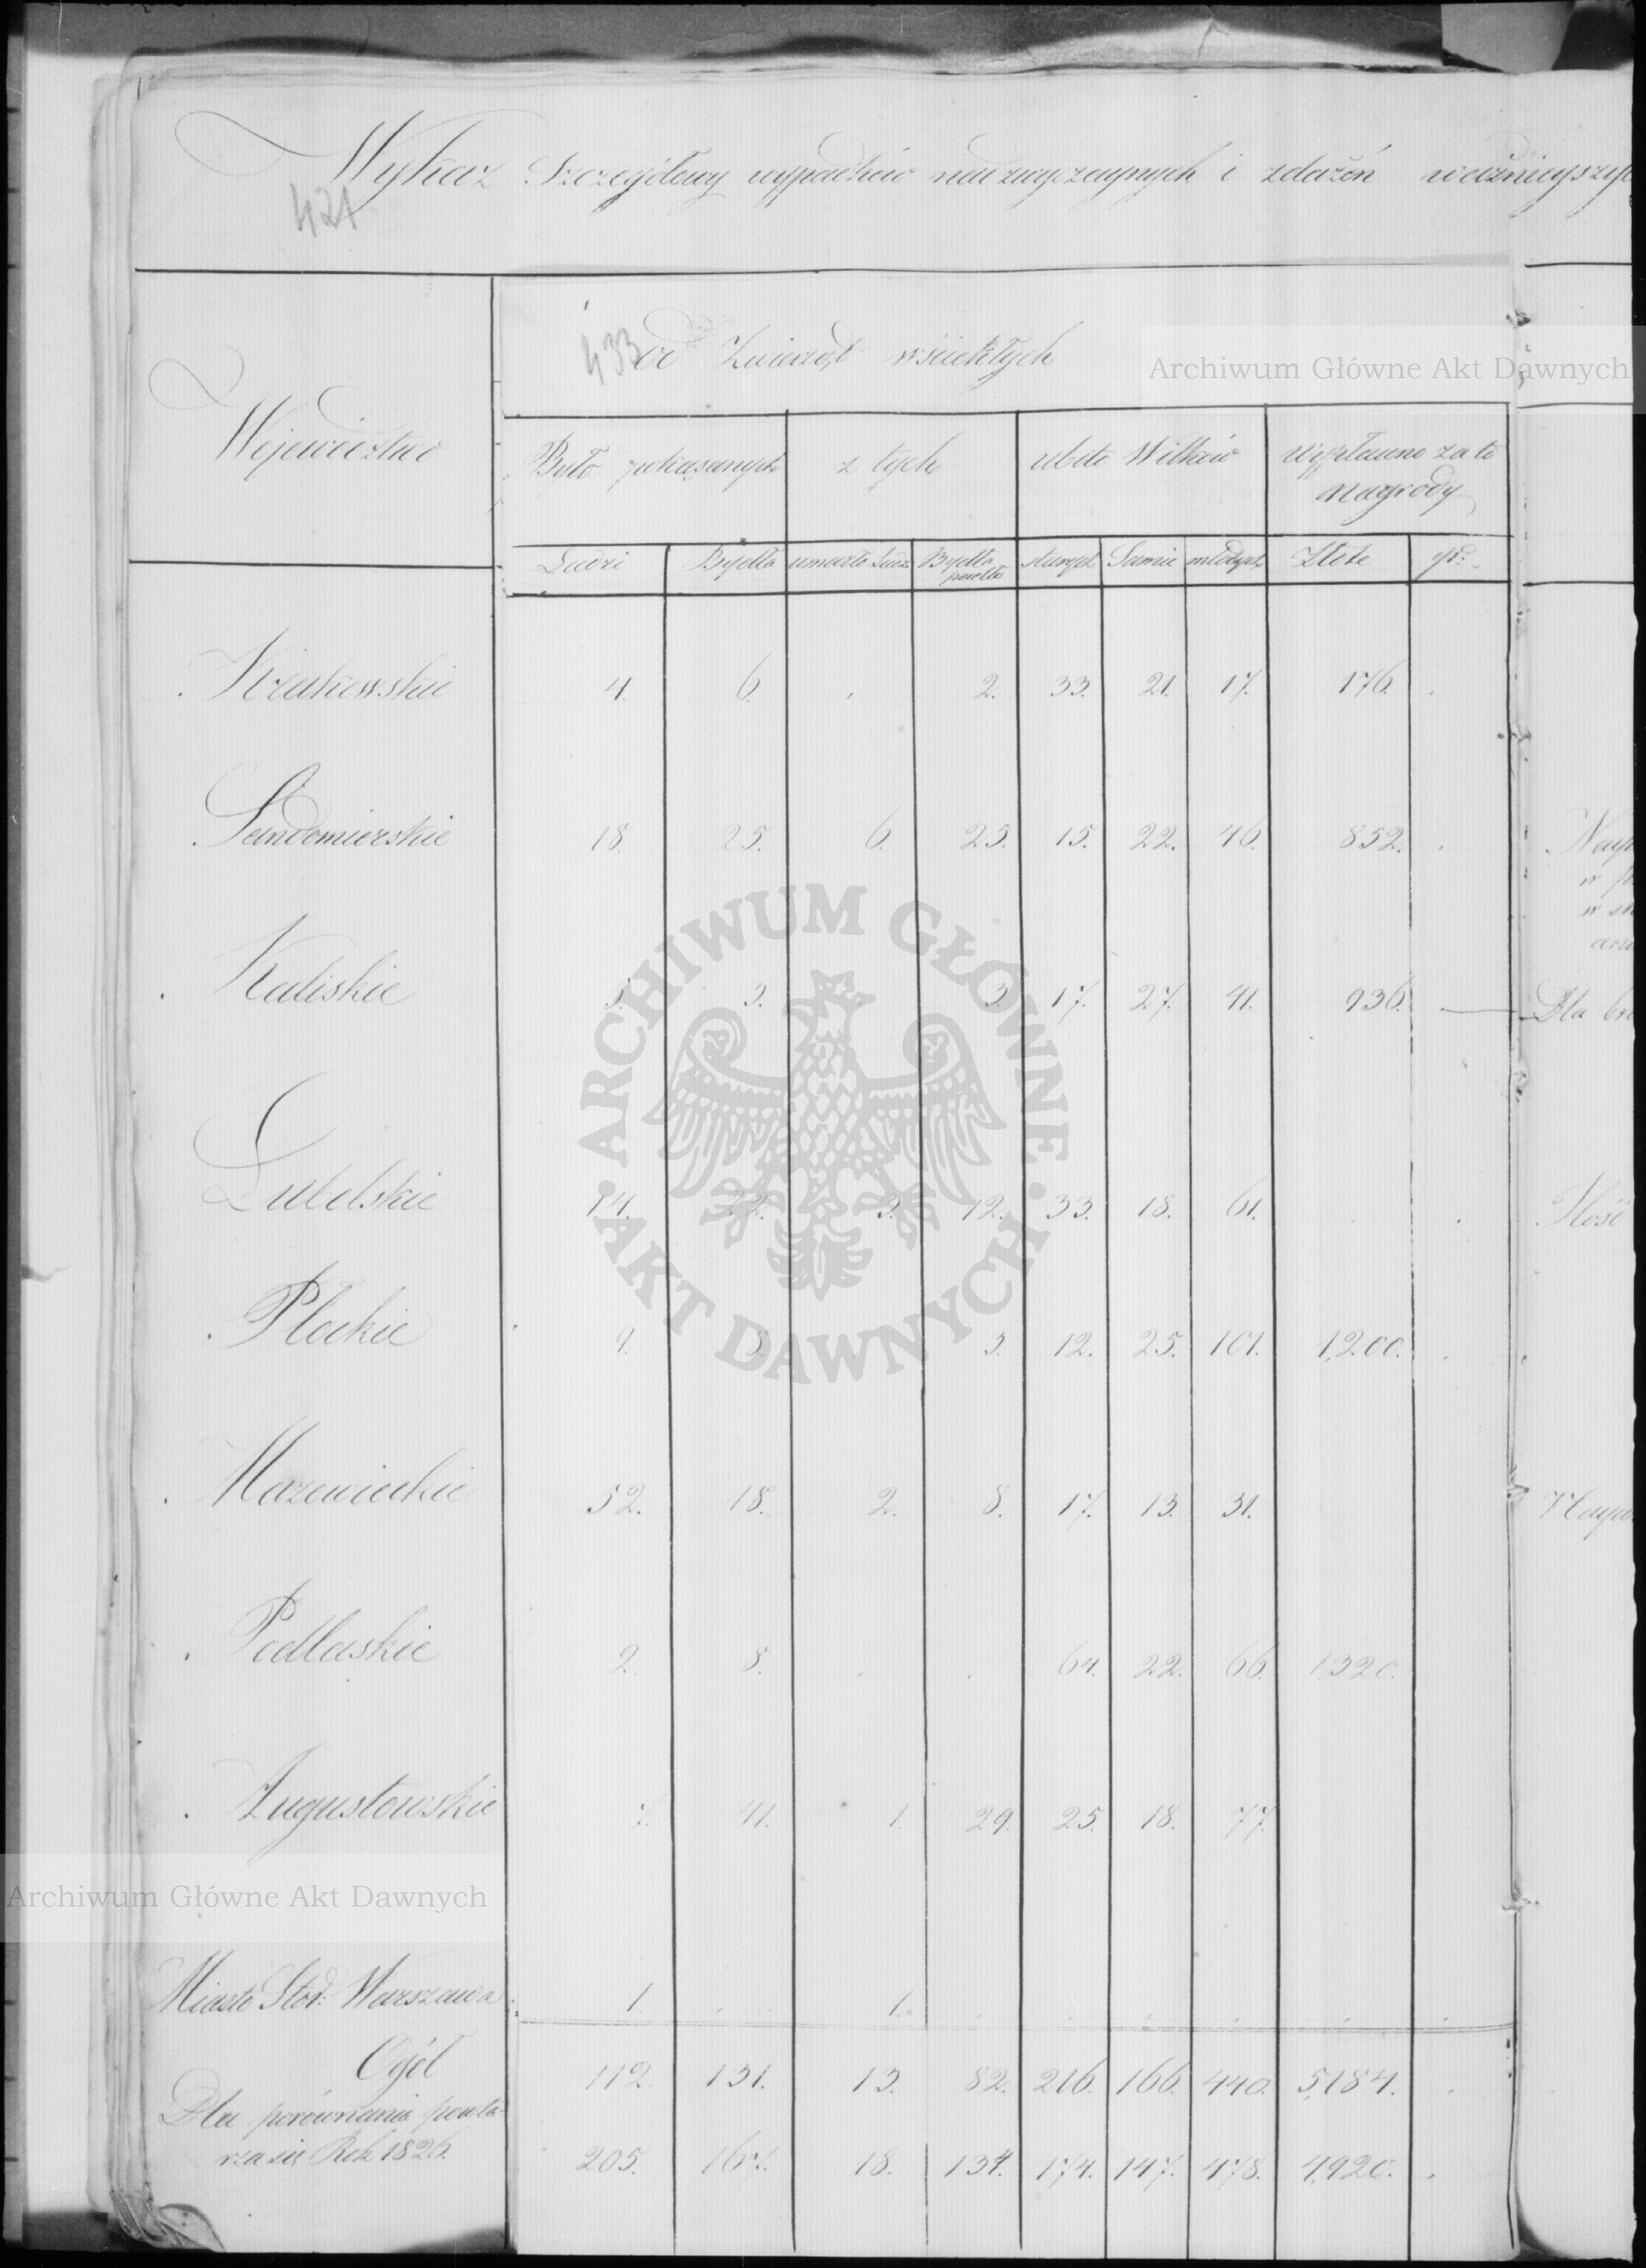 Wykaz Szczegółowy wypadków nadzwyczaynych i zdarzeń
421
433
od Zwierząt wściekłych
Archiwum Główne Akt Dawnych
Województwo
Było pokąsanych z tych ubito Wilków Wypłacono za to
Nagrody
Ludzi Bydła umarło Ludzi Bydła starych Samic młodych Złote gr:
padło
Krakowskie 4. 6. . 2. 33. 21. 17. 176. .
Sandomierskie 18. 25. 6. 25. 15. 22. 46. 852. .
Kaliskie 5. 3. . 3. 17. 27. 41. 936.
Dla
Lubelskie 14. 22. 3. 12. 33. 18. 61.
Ilość
Płockie 9. 8. . 3. 12. 25. 101. 1,200. .
Mazowieckie 52. 18. 2. 8. 17. 13. 31.
Podlaskie 2. 8. . . 64. 22. 66. 1,320.
Augustowskie 7. 41. 1. 29. 25. 18. 77.
Archiwum Główne Akt Dawnych
Miasto Stoł: Warszawa 1. . 1. . . . . . .
Ogół 112. 131. 13. 82. 216. 166. 440. 5,184. .
Dla porównania powta-
rza się Rok 1826. 205. 167. 18. 134. 174. 147. 478. 4,920. .
ARCHIWUM GŁÓWNE
AKT DAWNYCH